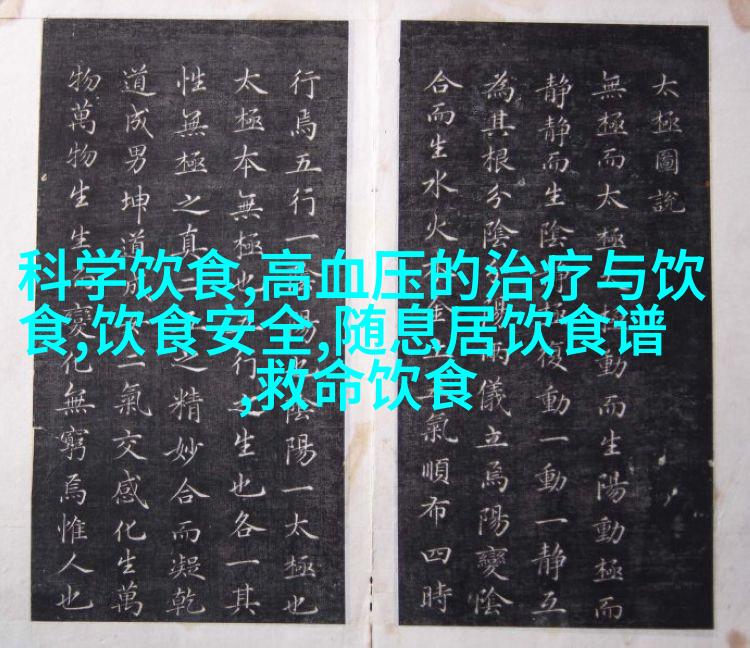 科学饮食,高血压的治疗与饮
食,饮食安全,随息居饮食谱
,救命饮食
太極圖說
無極而太極動而生陽動極而
静静而生陰復動一動一静互
為其根分陰陽儀立焉陽變陰
合而生水火金氣順布四時
行焉五行一陽陰陽一太極也
太極本無極也行生也各一其
性無極之真二之精妙合而凝乾
道成男坤道成二氣交感化生萬
物萬物生生變化無窮焉惟人也